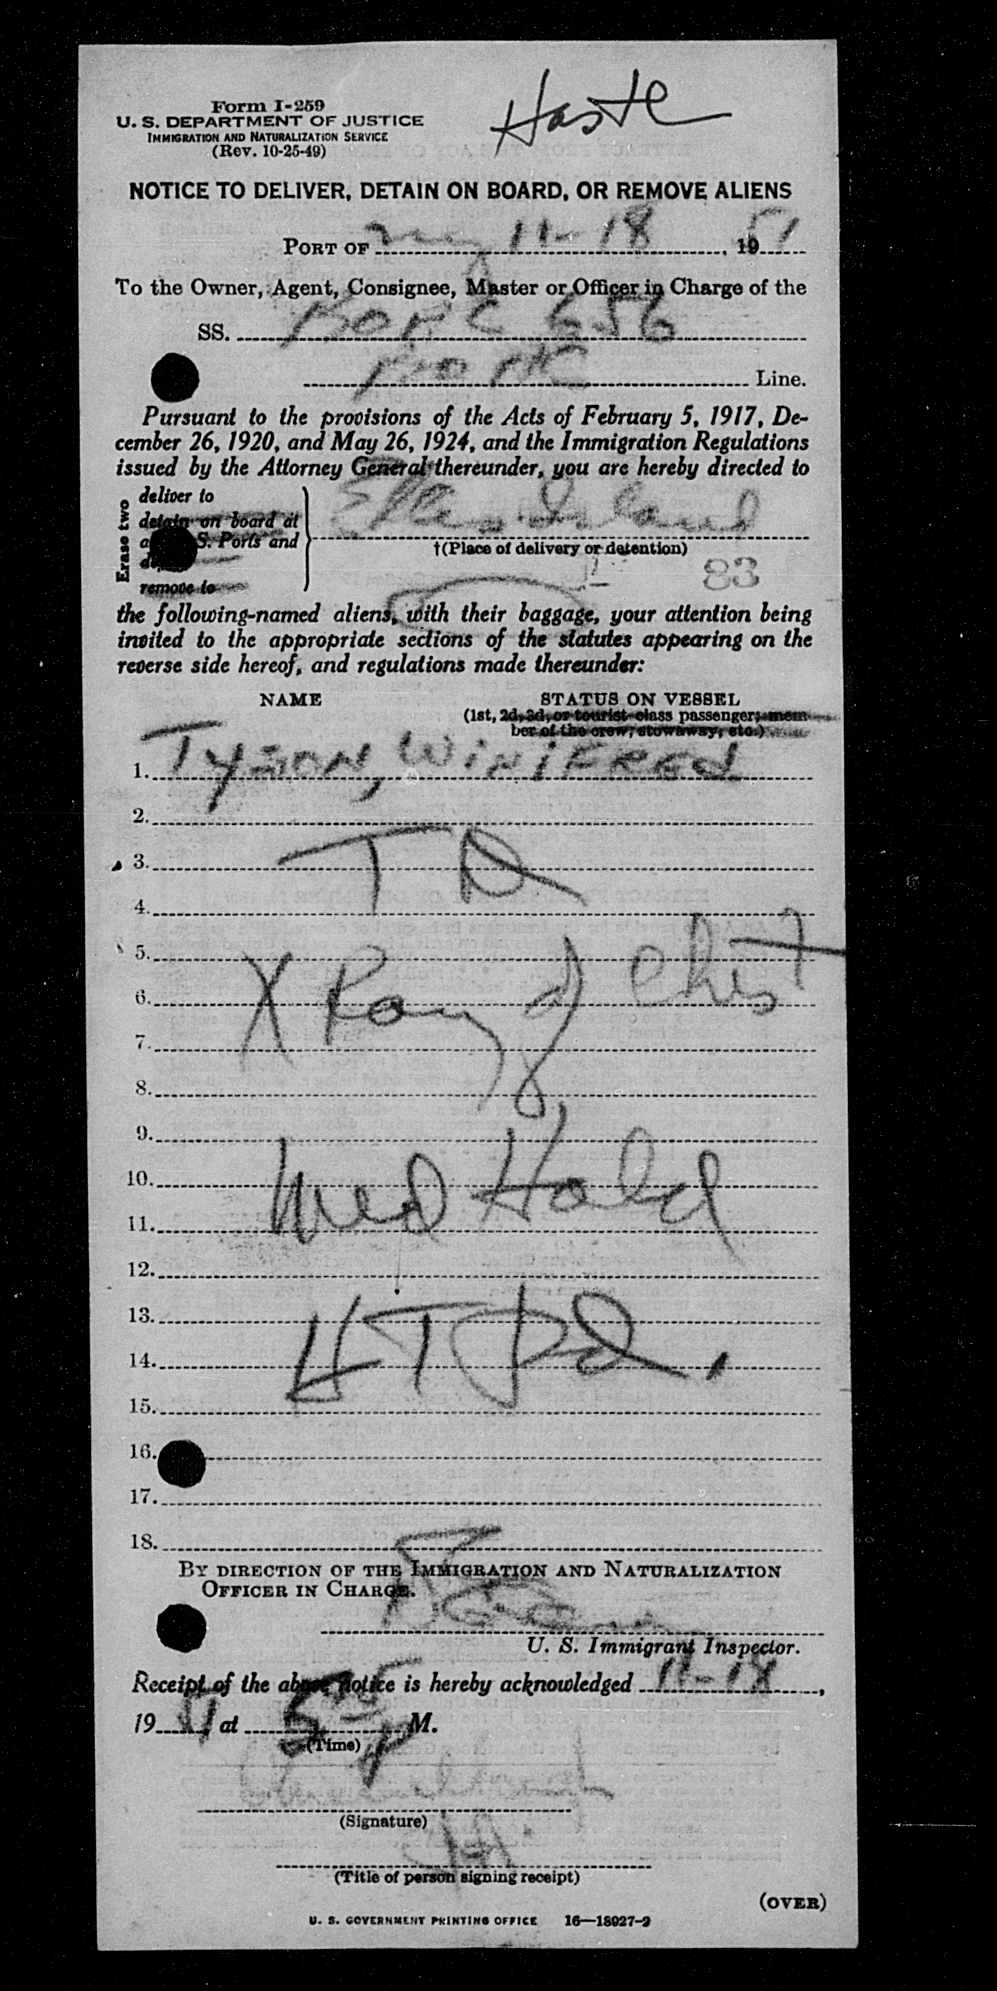 Form I-259
U. S. DEPARTMENT OF JUSTICE
IMMIGRATION AND NATURALIZATION SERVICE
(Rev. 10-25-49)
NOTICE TO DELIVER, DETAIN ON BOARD, OR REMOVE ALIENS
PORT OF NY 11-18, 1951
To the Owner, Agent, Consignee, Master or Officer in Charge of the
SS. BOAC 656
Line.
Pursuant to the provisions of the Acts of February 5, 1917, De-
cember 26, 1920, and May 26, 1924, and the Immigration Regulations
issued by the Attorney General thereunder, you are hereby directed to
Erase two
deliver to
detain on board at
S. Ports and
remove to
Ellis Island
†(Place of delivery or detention)
83
the following-named aliens, with their baggage, your attention being
invited to the appropriate sections of the statutes appearing on the
reverse side hereof, and regulations made thereunder:
NAME STATUS ON VESSEL
(1st, 2d, 3d, or tourist class passenger; mem-
ber of the crew, stowaway, etc.)
1. TYSON, WINIFRED
2.
3. T D
4.
5.
6. X Ray of Chest
7.
8.
9.
10. Med Hold
11.
12.
13.
14.
15.
16.
17.
18.
BY DIRECTION OF THE IMMIGRATION AND NATURALIZATION
OFFICER IN CHARGE.
U. S. Immigrant Inspector.
Receipt of the above notice is hereby acknowledged 11-18,
1951, at P M.
(Time)
(Signature)
(Title of person signing receipt)
(OVER)
U. S. GOVERNMENT PRINTING OFFICE 16—18027-2